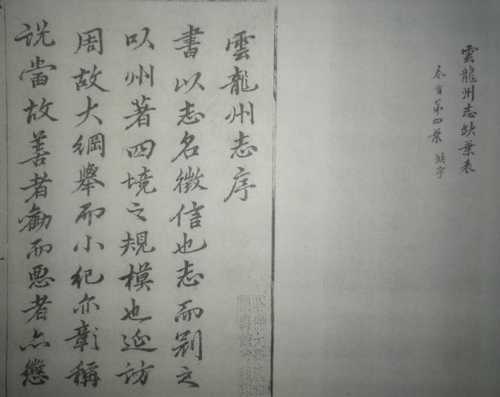 雲龍州志缺葉表
卷首第四葉 缺字
雲龍州志序
書以志名徵信也志而别之
以州著四境之規模也延訪
周故大綱舉而小紀亦彰稱
説當故善者勸而惡者亦懲